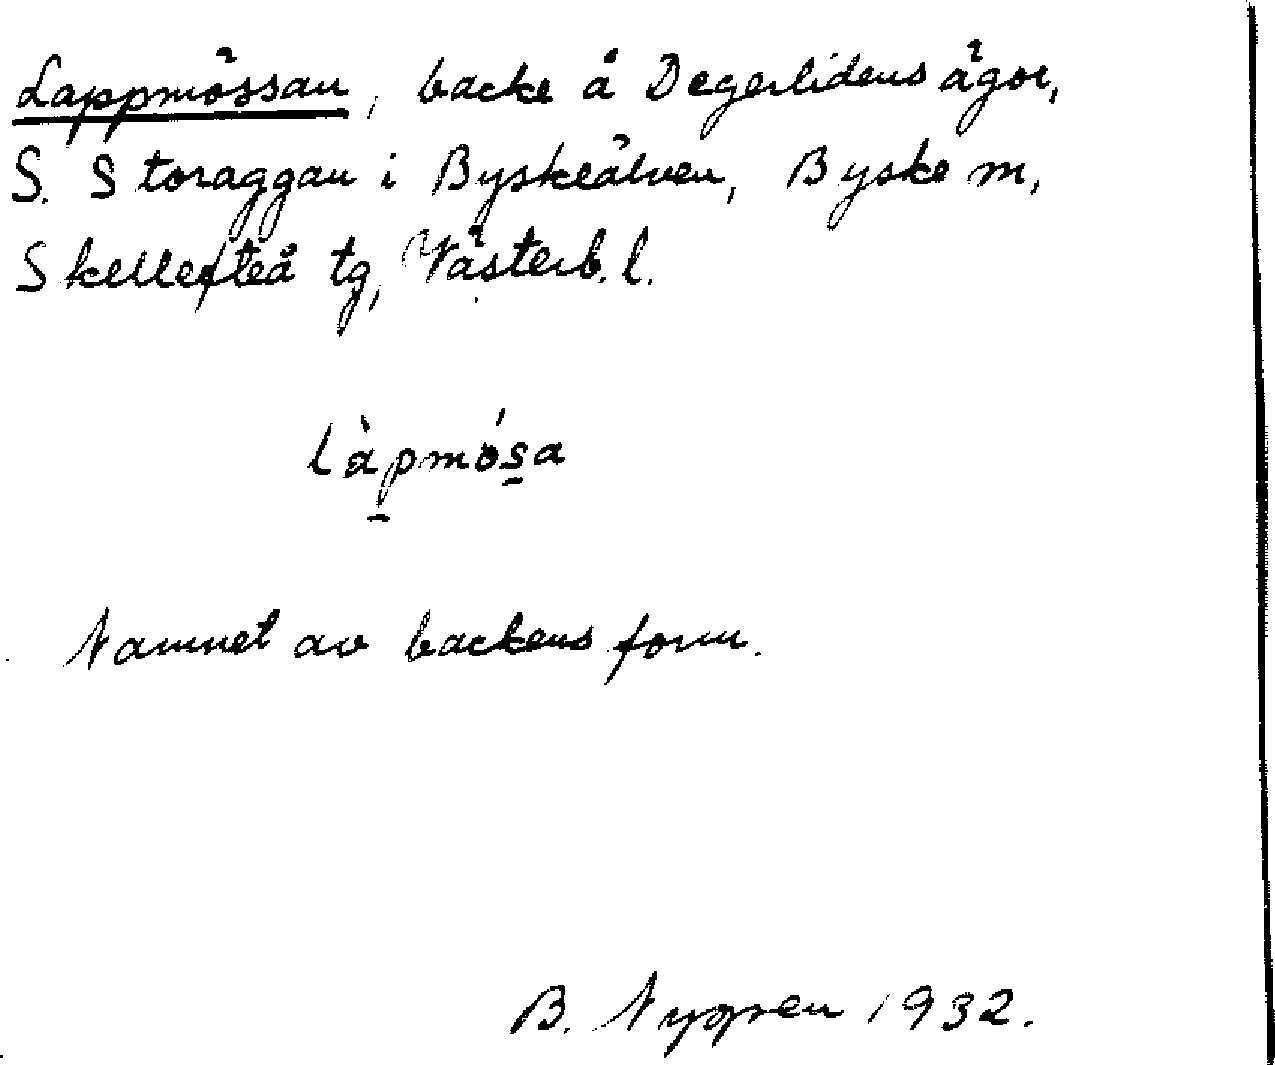 Lappmössan, backe å Degerlidens ägor,
S. Storaggan i Byskeälven, Byske m,
Skellefteå tg, Västerb. l.
làpmósa
Namnet av backens form.
B. Nygren 1932.